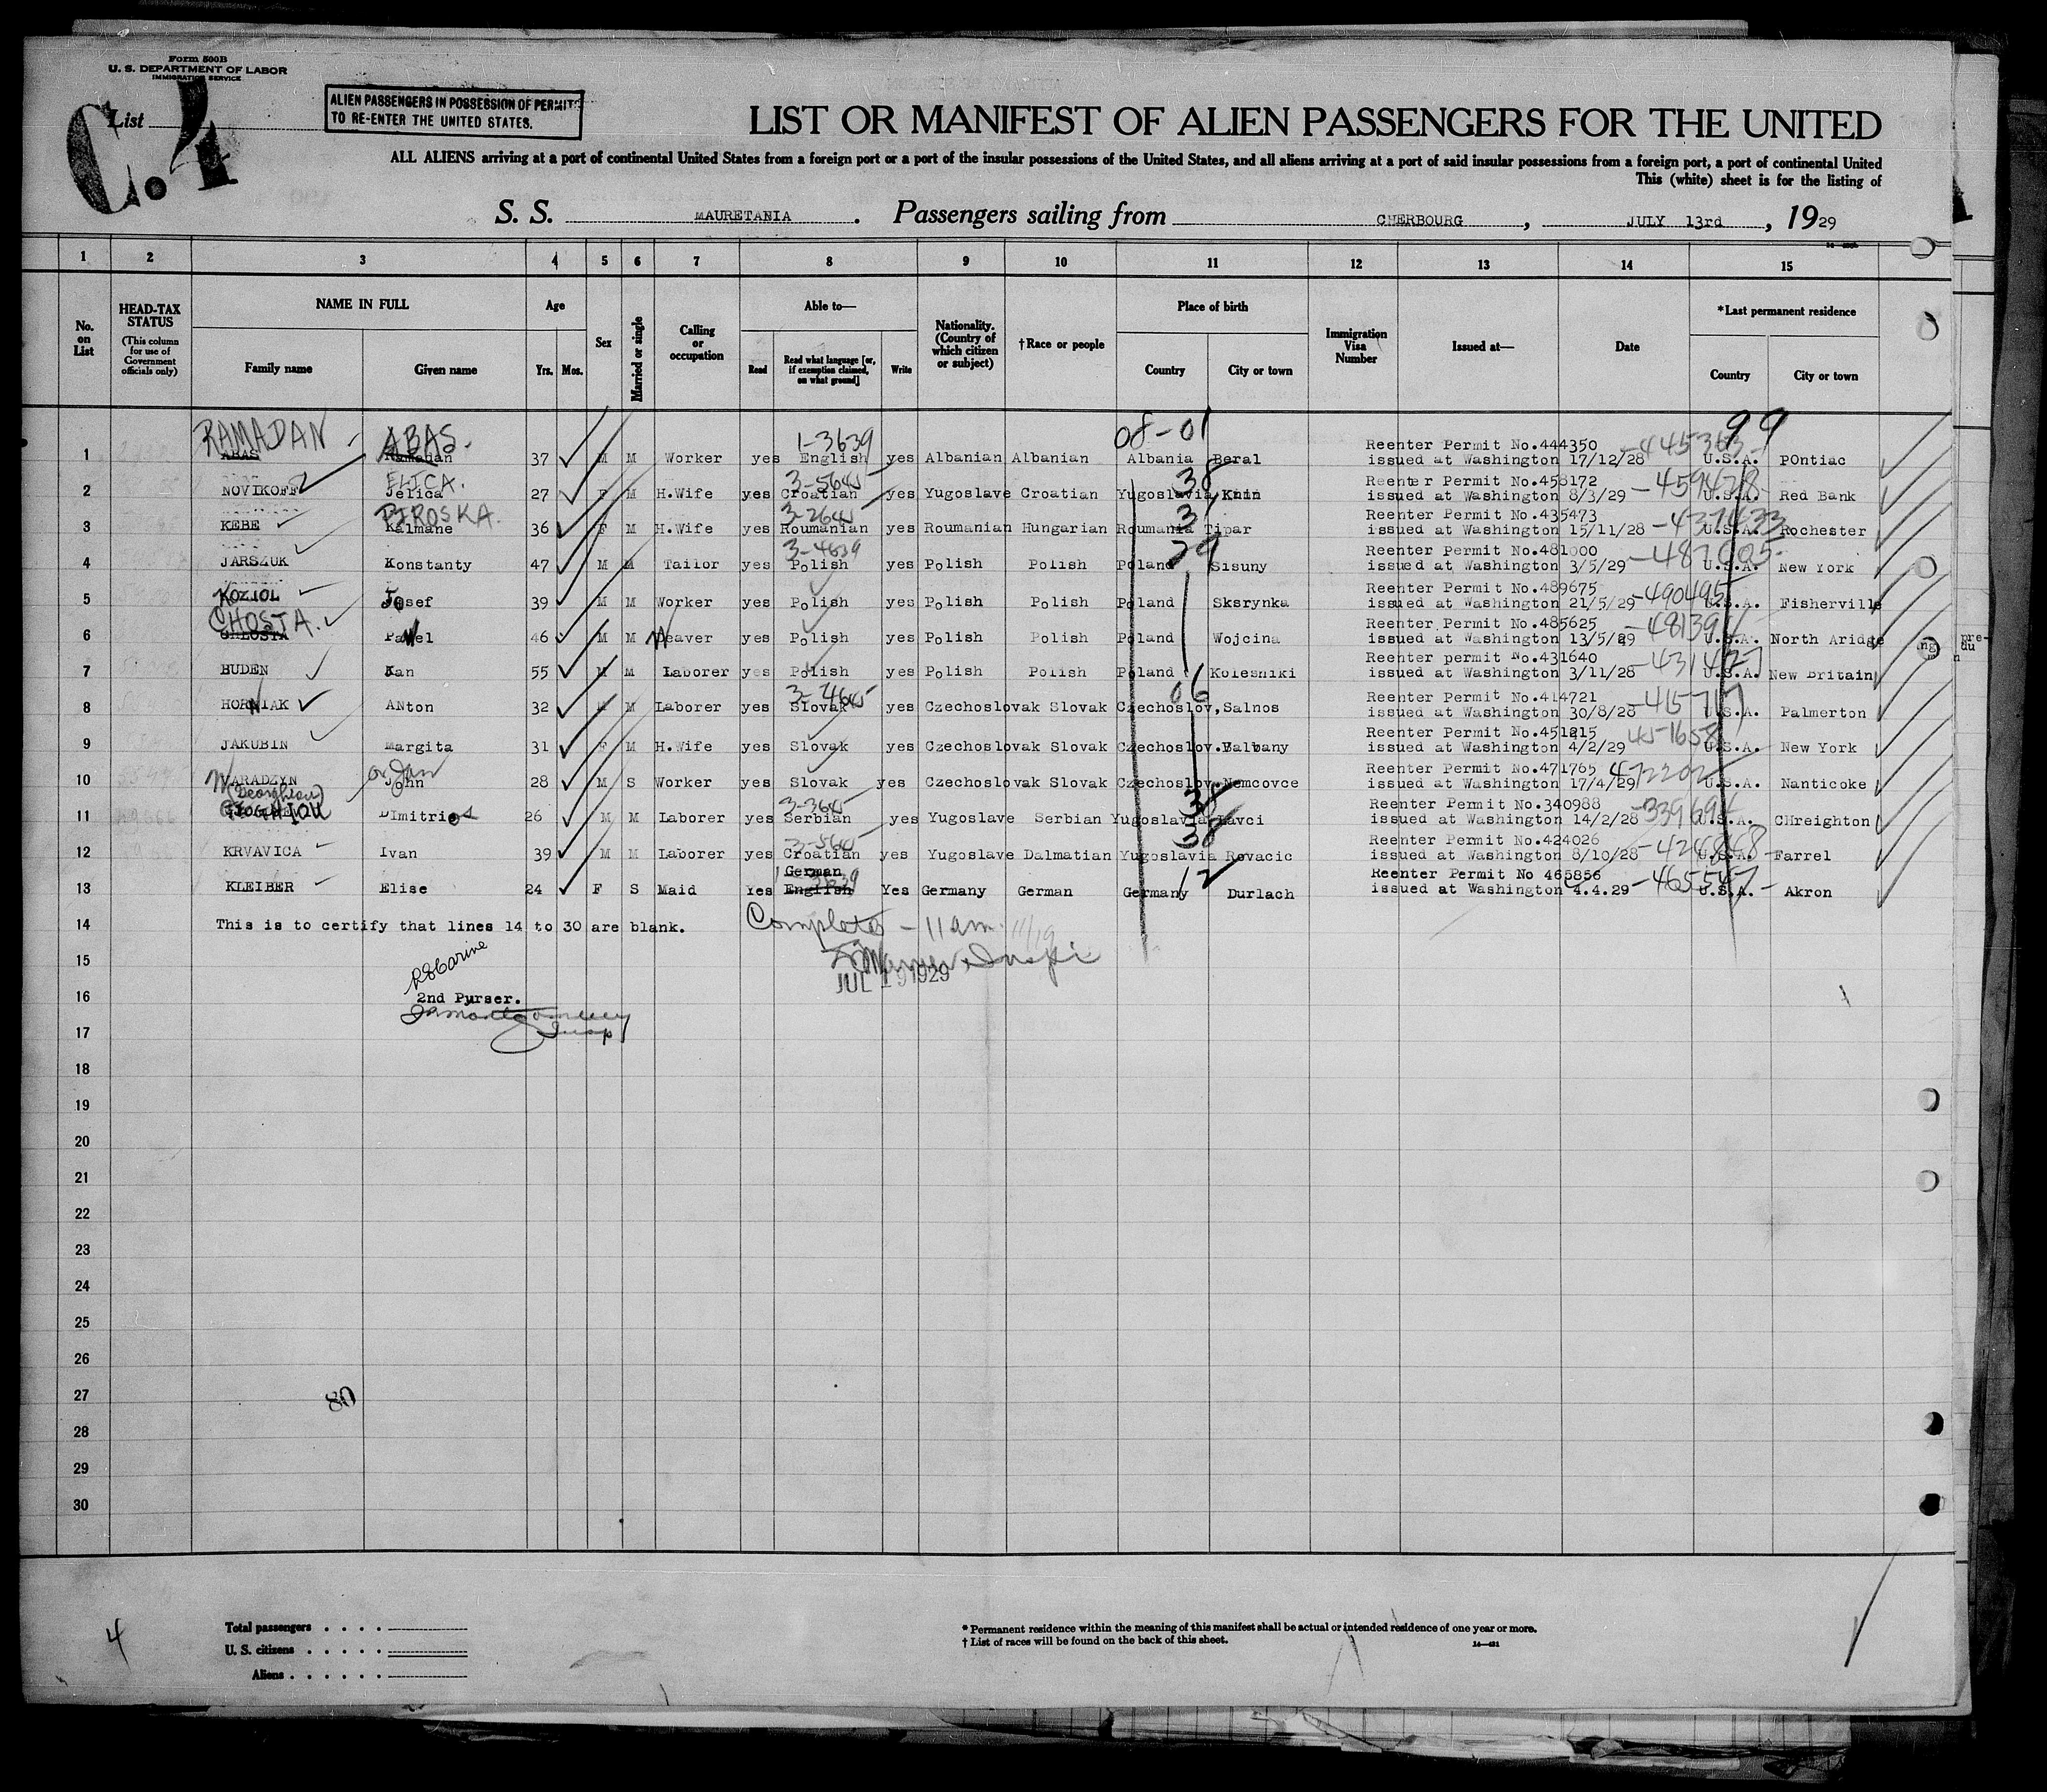 Form 500B
U. S. DEPARTMENT OF LABOR
IMMIGRATION SERVICE
C.4
List
ALIEN PASSENGERS IN POSSESSION OF PERMITS
TO RE-ENTER THE UNITED STATES.
LIST OR MANIFEST OF ALIEN PASSENGERS FOR THE UNITED
ALL ALIENS arriving at a port of continental United States from a foreign port or a port of the insular possessions of the United States, and all aliens arriving at a port of said insular possessions from a foreign port, a port of continental United
This (white) sheet is for the listing of
S. S. MAURETANIA. Passengers sailing from CHERBOURG, JULY 13rd, 1929
1 2 3 4 5 6 7 8 9 10 11 12 13 14 15
No. on List
HEAD-TAX STATUS (This column for use of Government officials only)
NAME IN FULL Family name Given name
Age Yrs. Mos.
Sex
Married or single
Calling or occupation
Able to— Read Read what language [or, if exemption claimed, on what ground] Write
Nationality. (Country of which citizen or subject)
†Race or people
Place of birth Country City or town
Immigration Visa Number
Issued at—
Date
*Last permanent residence Country City or town
RAMADAN ABAS. 1-3639 08-01 Reenter Permit No.444350 -445363 99
1 ABAS Ramadan 37 M M Worker yes English yes Albanian Albanian Albania Beral issued at Washington 17/12/28 U.S.A. POntiac
ELICA. 3-5645 38 Reenter Permit No.458172 -459478
2 NOVIKOFF Jelica 27 F M H.Wife yes Croatian yes Yugoslave Croatian Yugoslavia, Knin issued at Washington 8/3/29 U.S.A. Red Bank
PIROSKA. 3-2645 31 Reenter Permit No.435473 -437433
3 KEBE Kalmane 36 F M H.Wife yes Roumanian yes Roumanian Hungarian Roumania Tipar issued at Washington 15/11/28 U.S.A. Rochester
3-4639 29 Reenter Permit No.481000 -487005
4 JARSZUK Konstanty 47 M M Tailor yes Polish yes Polish Polish Poland Sisuny issued at Washington 3/5/29 U.S.A. New York
Reenter Permit No.489675
5 KOZIOL Josef 39 M M Worker yes Polish yes Polish Polish Poland Sksrynka issued at Washington 21/5/29 -490495 U.S.A. Fisherville
CHOSTA. Reenter Permit No.485625
6 Pawel 46 M M Weaver yes Polish yes Polish Polish Poland Wojcina issued at Washington 13/5/29 U.S.A. North Aridge
Reenter permit No.431640
7 BUDEN Kan 55 M M Laborer yes Polish yes Polish Polish Poland Kolesniki issued at Washington 3/11/28 U.S.A. New Britain
3-4645 06 Reenter Permit No.414721 -415717
8 HORNIAK ANton 32 M M Laborer yes Slovak yes Czechoslovak Slovak Czechoslov, Salnos issued at Washington 30/8/28 U.S.A. Palmerton
Reenter Permit No.451215 451658
9 JAKUBIN Margita 31 F M H.Wife yes Slovak yes Czechoslovak Slovak Czechoslov. Balbany issued at Washington 4/2/29 U.S.A. New York
or Jan Reenter Permit No.471765 472202
10 WARADZYN John 28 M S Worker yes Slovak yes Czechoslovak Slovak Czechoslov. Nemcovce issued at Washington 17/4/29 U.S.A. Nanticoke
3-3645 38 Reenter Permit No.340988
11 DImitrios 26 M M Laborer yes Serbian yes Yugoslave Serbian Yugoslavia issued at Washington 14/2/28 U.S.A. CHreighton
3-5645 38 Reenter Permit No.424026 -424868
12 KRVAVICA Ivan 39 M M Laborer yes Croatian yes Yugoslave Dalmatian Yugoslavia Rovacic issued at Washington 8/10/28 U.S.A. Farrel
German 12 Reenter Permit No 465856 -465547
13 KLEIBER Elise 24 F S Maid Yes English Yes Germany German Germany Durlach issued at Washington 4.4.29 U.S.A. Akron
14 This is to certify that lines 14 to 30 are blank. Completed - 11 am. 11/19
15
JUL 19 1929
16 2nd Purser.
17 Insp
18
19
20
21
22
23
24
25
26
27 80
28
29
30
4
Total passengers
U. S. citizens
Aliens
* Permanent residence within the meaning of this manifest shall be actual or intended residence of one year or more.
† List of races will be found on the back of this sheet.
14—421